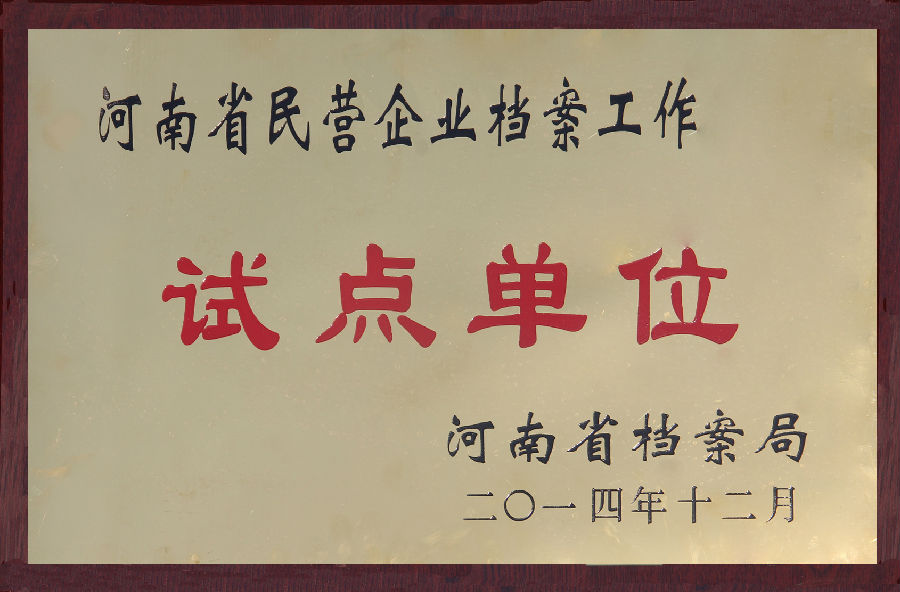 河南省民营企业档案工作
试点单位
河南省档案局
二〇一四年十二月